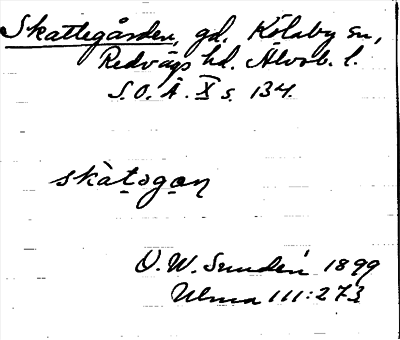 Skattegården, gd. Kölaby sn,
Redvägs hd. Älvsb. l.
S.O.Ä. X s. 134.
skàtəgaɳ
O.W. Sundén 1899
Ulma 111:273